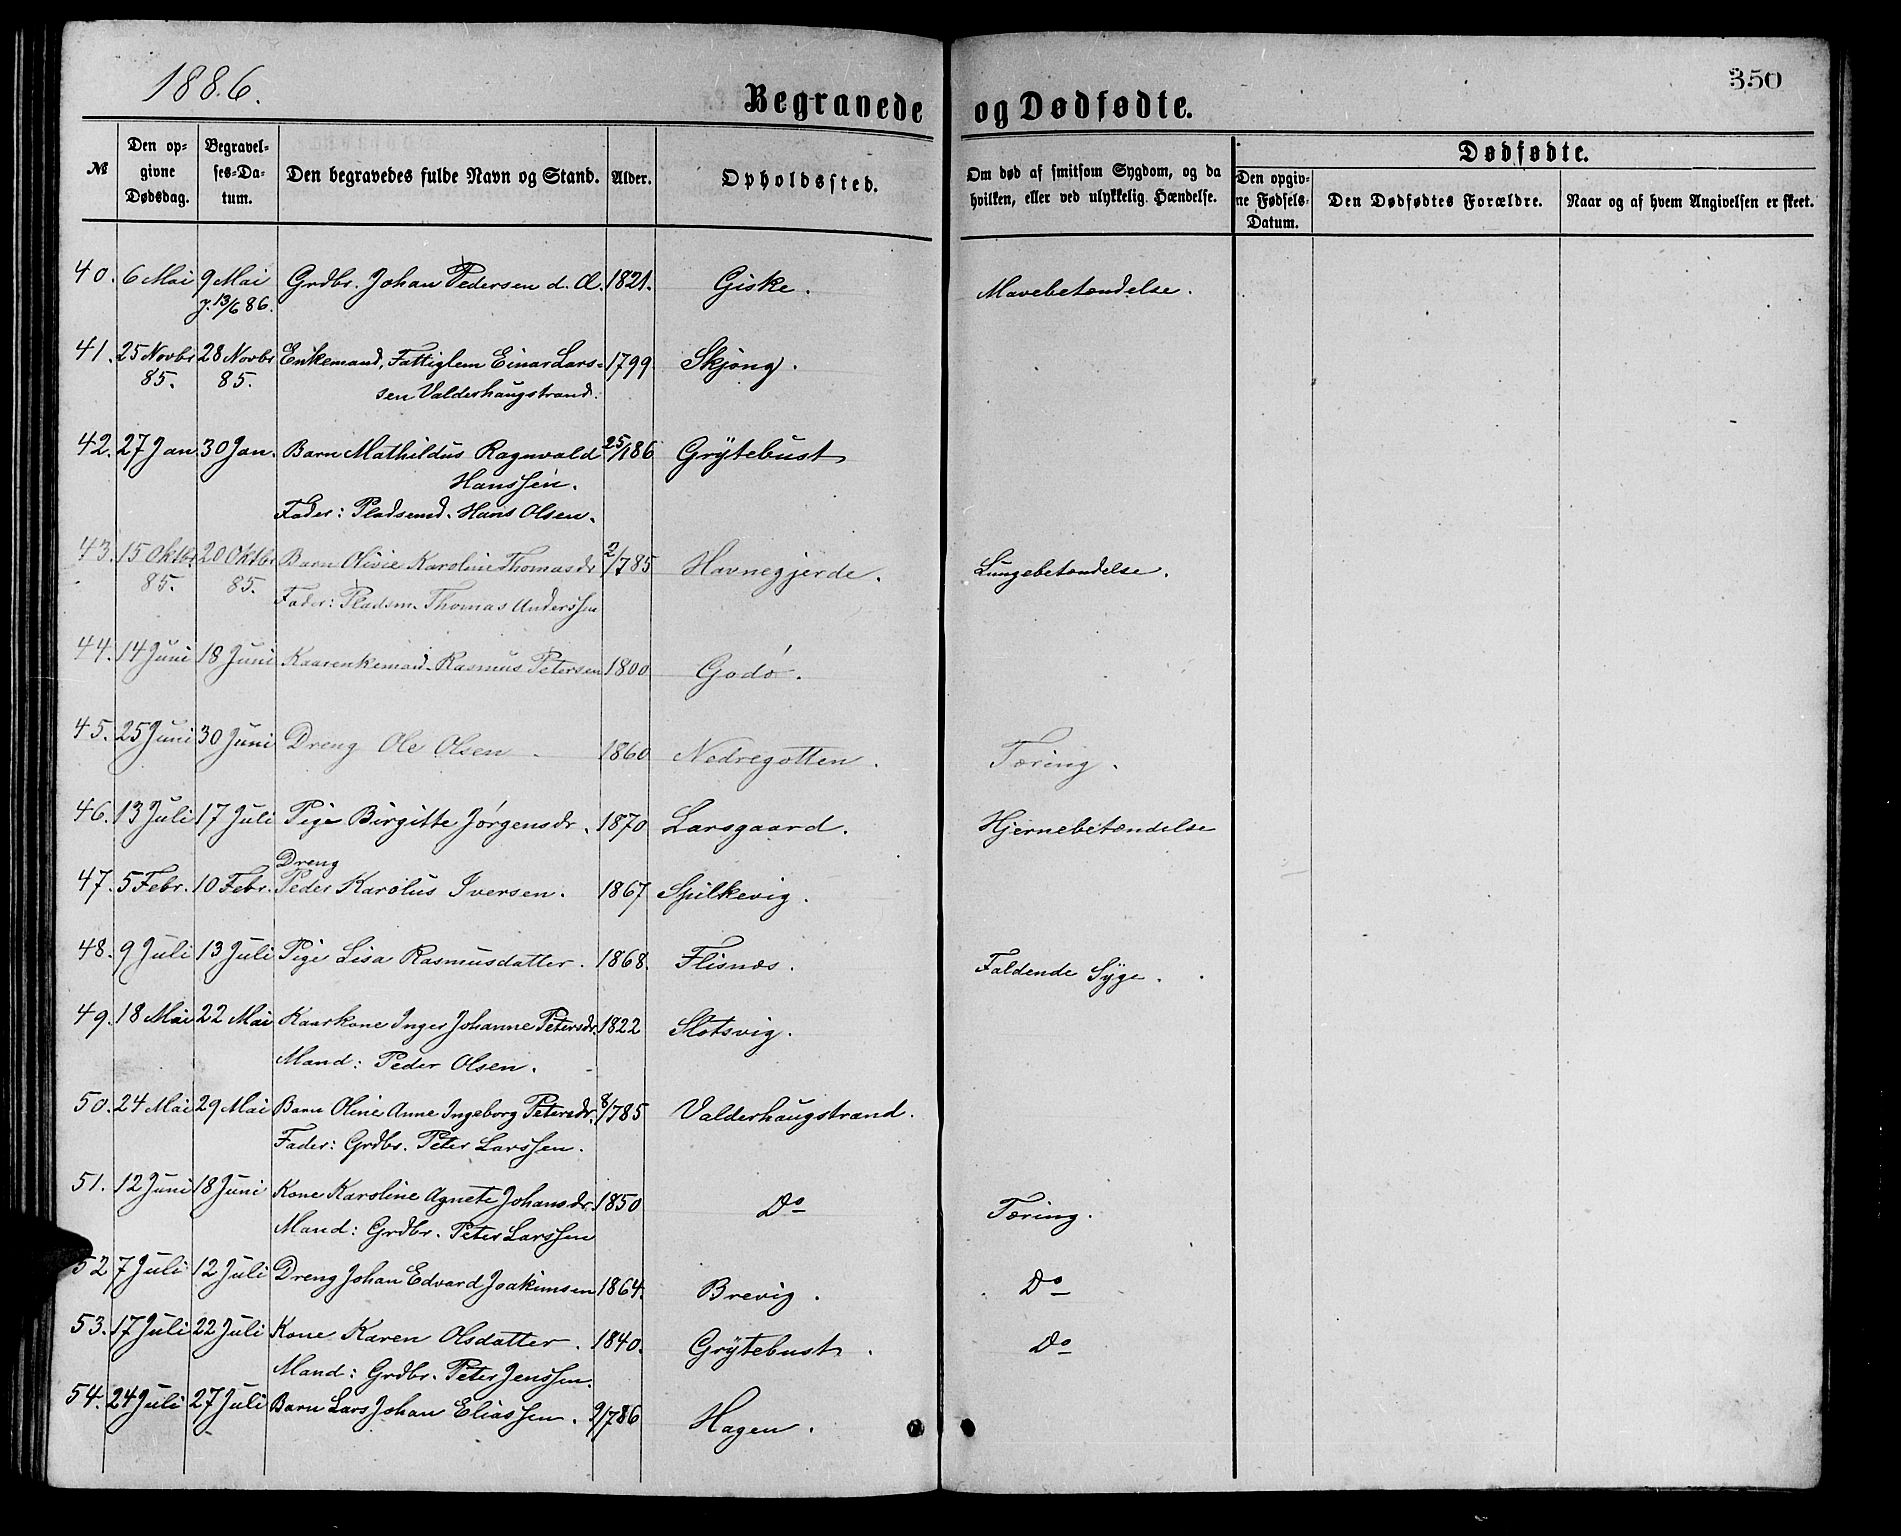 1886.
350
Begravede og Dødfødte.
№
Den opgivne Dødsdag.
Begravelses-Datum.
Den begravedes fulde Navn og Stand.
Alder.
Opholdssted.
Om død af smitsom Sygdom, og da hvilken, eller ved ulykkelig Hændelse.
Dødfødte.
Den opgivne Fødsels-Datum.
Den Dødfødtes Forældre.
Naar og af hvem Angivelsen er skeet.
40. 6 Mai 9 Mai Grdbr. Johan Pedersen d. Æ. 1821. Giske. Mavebetændelse.
j. 13/6 86.
41. 25 Novbr 28 Novbr Enkemand, Fattiglem Einar Lars- 1799 Skjong.
85. 85. sen Valderhaugstrand.
42. 27 Jan 30 Jan. Barn Mathildus Ragnvald 25/1 86 Grytebust
Hanssen.
Fader: Pladsemd. Hans Olsen.
43. 15 Oktbr 20 Oktbr Barn Olivie Karoline Thomasdr 2/7 85 Havnegjerde. Lungebetændelse.
85. 85. Fader: Pladsm. Thomas Anderssen
44. 14 Juni 18 Juni Kaarenkemand. Rasmus Petersen 1800 Godø.
45. 25 Juni 30 Juni Dreng Ole Olsen 1860 Nedregotten. Tæring.
46. 13 Juli 17 Juli Pige Birgitte Jørgensdr. 1870 Larsgaard. Hjernebetændelse
Dreng
47. 5 Febr. 10 Febr. Peder Karolus Iversen. 1867 Spilkevig.
48. 9 Juli 13 Juli Pige Lisa Rasmusdatter. 1868. Flisnæs. Faldende Syge.
49. 18 Mai 22 Mai Kaarkone Inger Johanne Petersdr. 1822 Slotsvig.
Mand: Peder Olsen.
50. 24 Mai 29 Mai Barn Oline Anne Ingeborg Petersdr. 8/7 85 Valderhaugstrand.
Fader: Grdbr. Peter Larssen.
51. 12 Juni 18 Juni Kone Karoline Agnete Johansdr. 1850 Do Tæring.
Mand: Grdbr. Peter Larssen
52 7 Juli 12 Juli Dreng Johan Edvard Joakimsen 1864. Brevig. Do
53. 17 Juli 22 Juli Kone Karen Olsdatter. 1840. Grytebust. Do
Mand: Grdbr. Peter Jenssen.
54. 24 Juli 27 Juli Barn Lars Johan Eliassen. 9/7 86 Hagen.